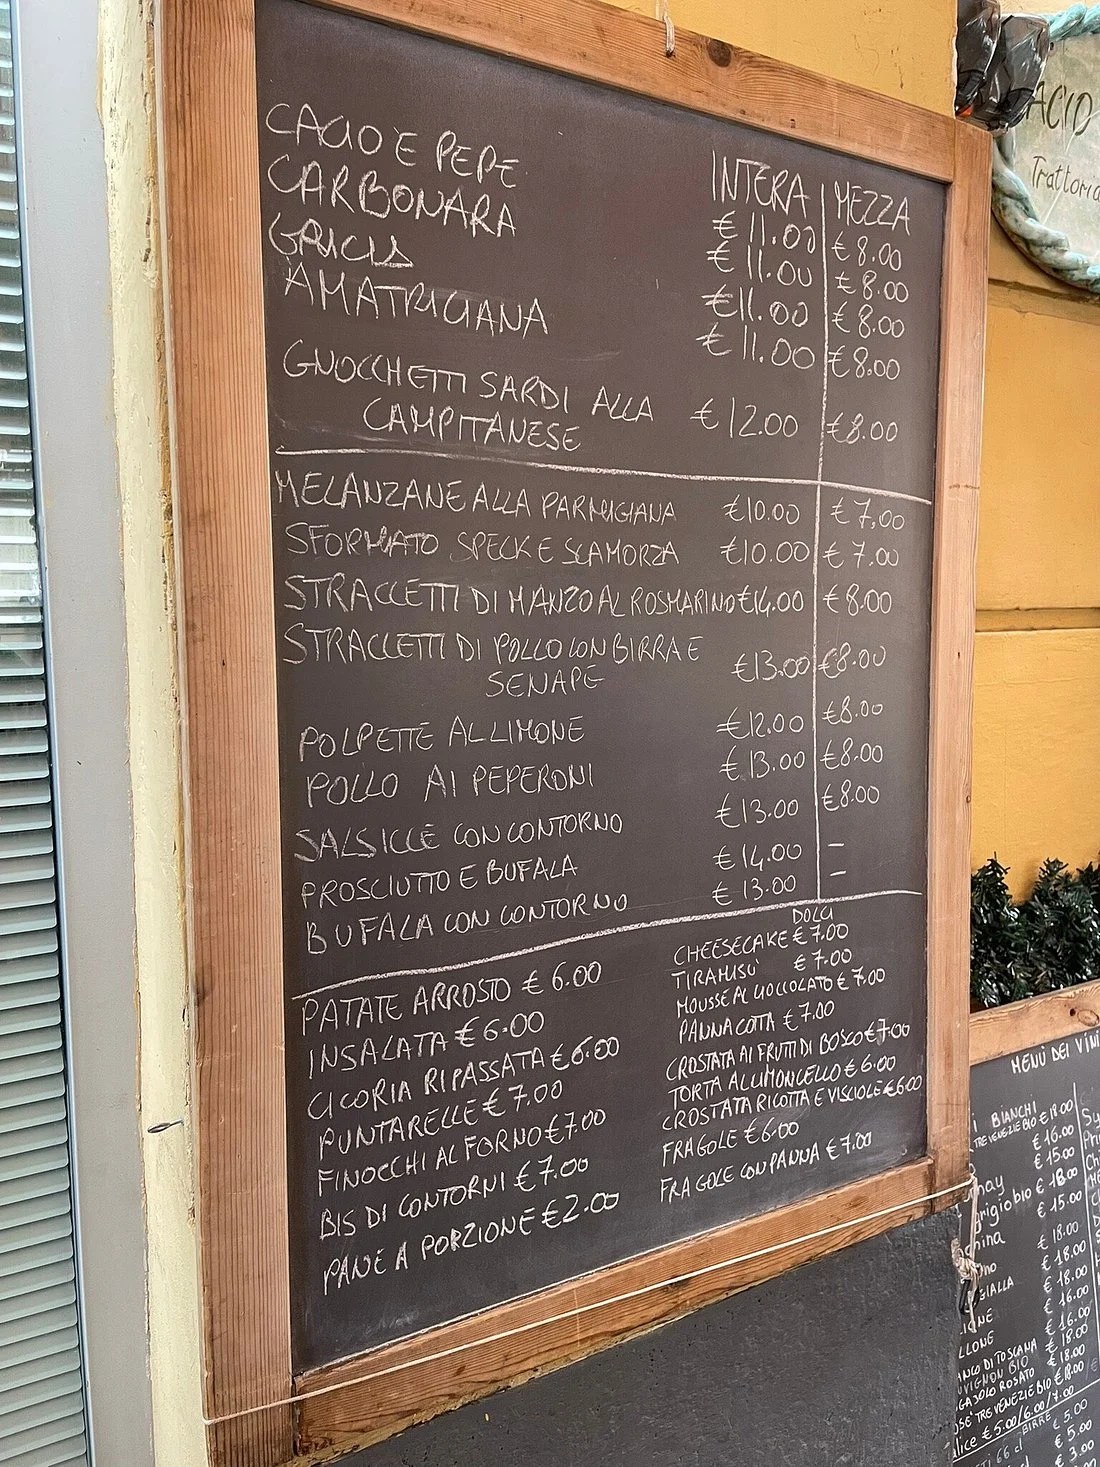 INTERA MEZZA
CACIO E PEPE € 11.00 € 8.00
CARBONARA € 11.00 € 8.00
GRICIA € 11.00 € 8.00
AMATRICIANA € 11.00 € 8.00
GNOCCHETTI SARDI ALLA
CAMPITANESE € 12.00 € 8.00
MELANZANE ALLA PARMIGIANA €10.00 € 7.00
SFORMATO SPECK E SCAMORZA €10.00 € 7.00
STRACCETTI DI MANZO AL ROSMARINO €14.00 € 8.00
STRACCETTI DI POLLO CON BIRRA E
SENAPE €13.00 €8.00
POLPETTE AL LIMONE €12.00 €8.00
POLLO AI PEPERONI € 13.00 €8.00
SALSICCE CON CONTORNO €13.00 €8.00
PROSCIUTTO E BUFALA € 14.00 –
BUFALA CON CONTORNO € 13.00 –
PATATE ARROSTO € 6.00
INSALATA € 6.00
CICORIA RIPASSATA € 6.00
PUNTARELLE € 7.00
FINOCCHI AL FORNO €7.00
BIS DI CONTORNI € 7.00
PANE A PORZIONE €2.00
DOLCI
CHEESECAKE € 7.00
TIRAMISU' € 7.00
MOUSSE AL CIOCCOLATO € 7.00
PANNA COTTA € 7.00
CROSTATA AI FRUTTI DI BOSCO €7.00
TORTA AL LIMONCELLO € 6.00
CROSTATA RICOTTA E VISCIOLE €6.00
FRAGOLE € 6.00
FRAGOLE CON PANNA € 7.00
ACIO
Trattoria
MENÙ DEI VINI
BIANCHI
TRE VENEZIE BIO € 18.00
€ 16.00
€ 15.00
€ 18.00
€ 15.00
€ 18.00
€ 18.00
GIALLA € 18.00
€ 16.00
€ 16.00
DI TOSCANA € 18.00
BIO € 18.00
ROSATO
TRE VENEZIE BIO € 18.00
€ 5.00/6.00/7.00
BIRRE
66 cl € 5.00
€ 5.00
€ 3.00